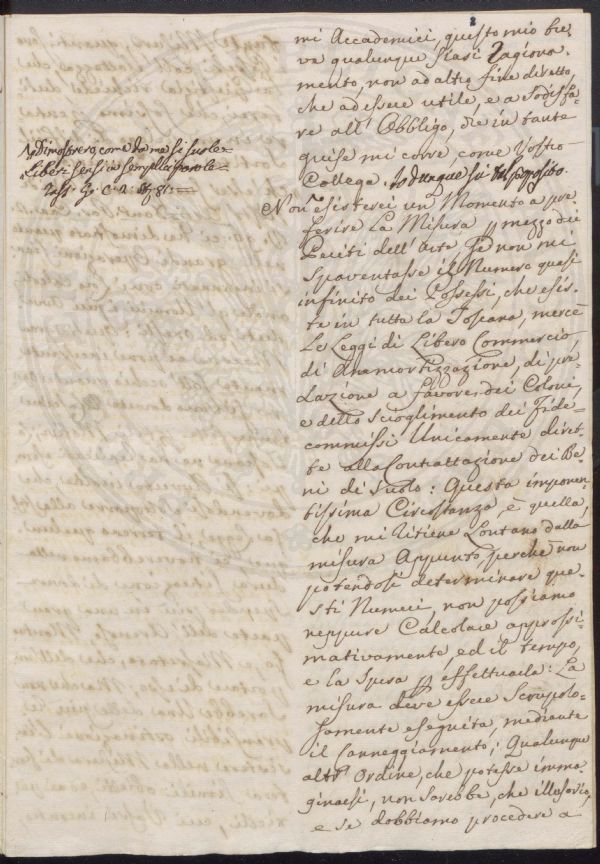 mi Accademici, questo mio bre=
ve qualunque siasi Ragiona=
mento, non ad altro fine diretto,
che ad essere utile, e a sodisfa=
re all' Obbligo, che in tante
guise mi corre, come Vostro
Collega. Io dunque sù tal proposito.
Dimostrero, come da me si suole=
Liberi sensi in semplici parole=
Tass. G. C. 2. St. 81.==
Non esisterei un' Momento a pre=
ferire La Misura p mezzo dei
Periti dell' Arte, se non mi
spaventasse il Numero quasi
infinito dei Possessi, che esis=
te in tutta la Toscana, mercè
Le Leggi di Libero Commercio,
di Anamortizzazione, di pre=
Lazione a favore dei Coloni,
e dello scioglimento dei Fide=
commissi Unicamente diret=
te alla Contrattazione dei Be=
ni di Suolo: Questa imponen=
tissima Circostanza, è quella,
che mi ritiene Lontano dalla
misura Appunto, perche non
potendosi determinare que=
sti Numeri, non possiamo
neppure Calcolare approssi=
mativamente ed il tempo,
e la spesa p effettuarla: La
misura deve essere Scrupolo=
samente eseguita, mediante
il Canneggiamento; Qualunque
altr' Ordine, che potesse imma=
ginarsi, non sarebbe, che illusorio,
e se dobbiamo procedere a